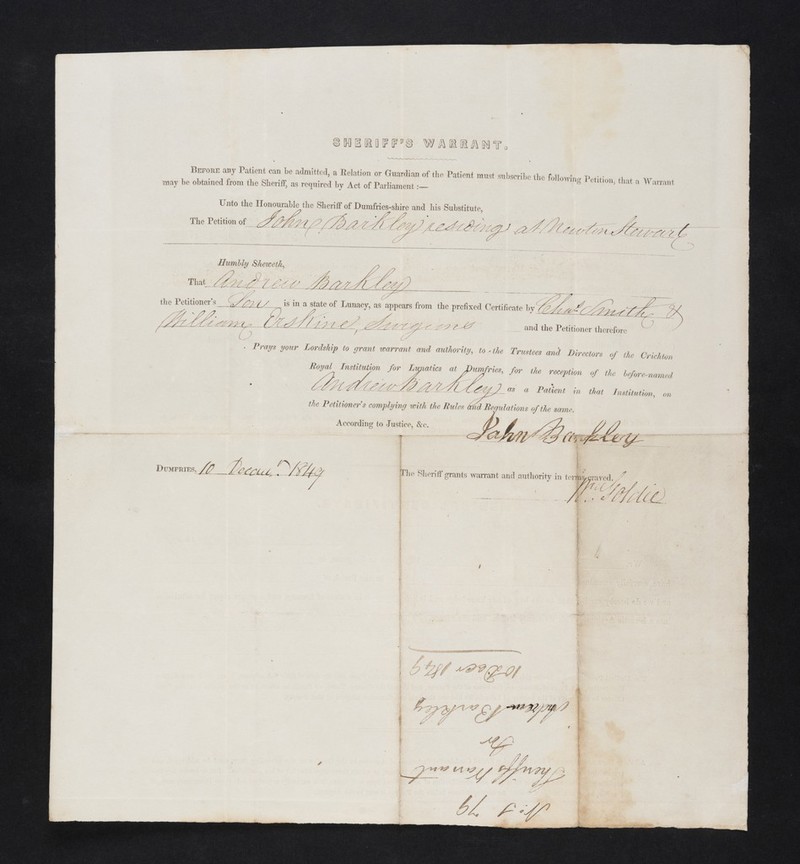 SHERIFF'S WARRANT.
BEFORE any Patient can be admitted, a Relation or Guardian of the Patient must subscribe the following Petition, that a Warrant
may be obtained from the Sheriff, as required by Act of Parliament:—
Unto the Honourable the Sheriff of Dumfries-shire and his Substitute,
The Petition of John Barkley residing at Newton Stewart
Humbly Sheweth,
That Andrew Barkley
the Petitioner's Son is in a state of Lunacy, as appears from the prefixed Certificate by Chas Smith &
William Erskine, Surgeons and the Petitioner therefore
Prays your Lordship to grant warrant and authority, to the Trustees and Directors of the Crichton
Royal Institution for Lunatics at Dumfries, for the reception of the before-named
Andrew Barkley as a Patient in that Institution, on
the Petitioner's complying with the Rules and Regulations of the same.
According to Justice, &c.
John Barkley
DUMFRIES, 10 Decemr. 1849
The Sheriff grants warrant and authority in terms craved.
Wm. Goldie
No. 79
Sheriffs Warrant
for
Andrew Barkley
10 Decr 1849